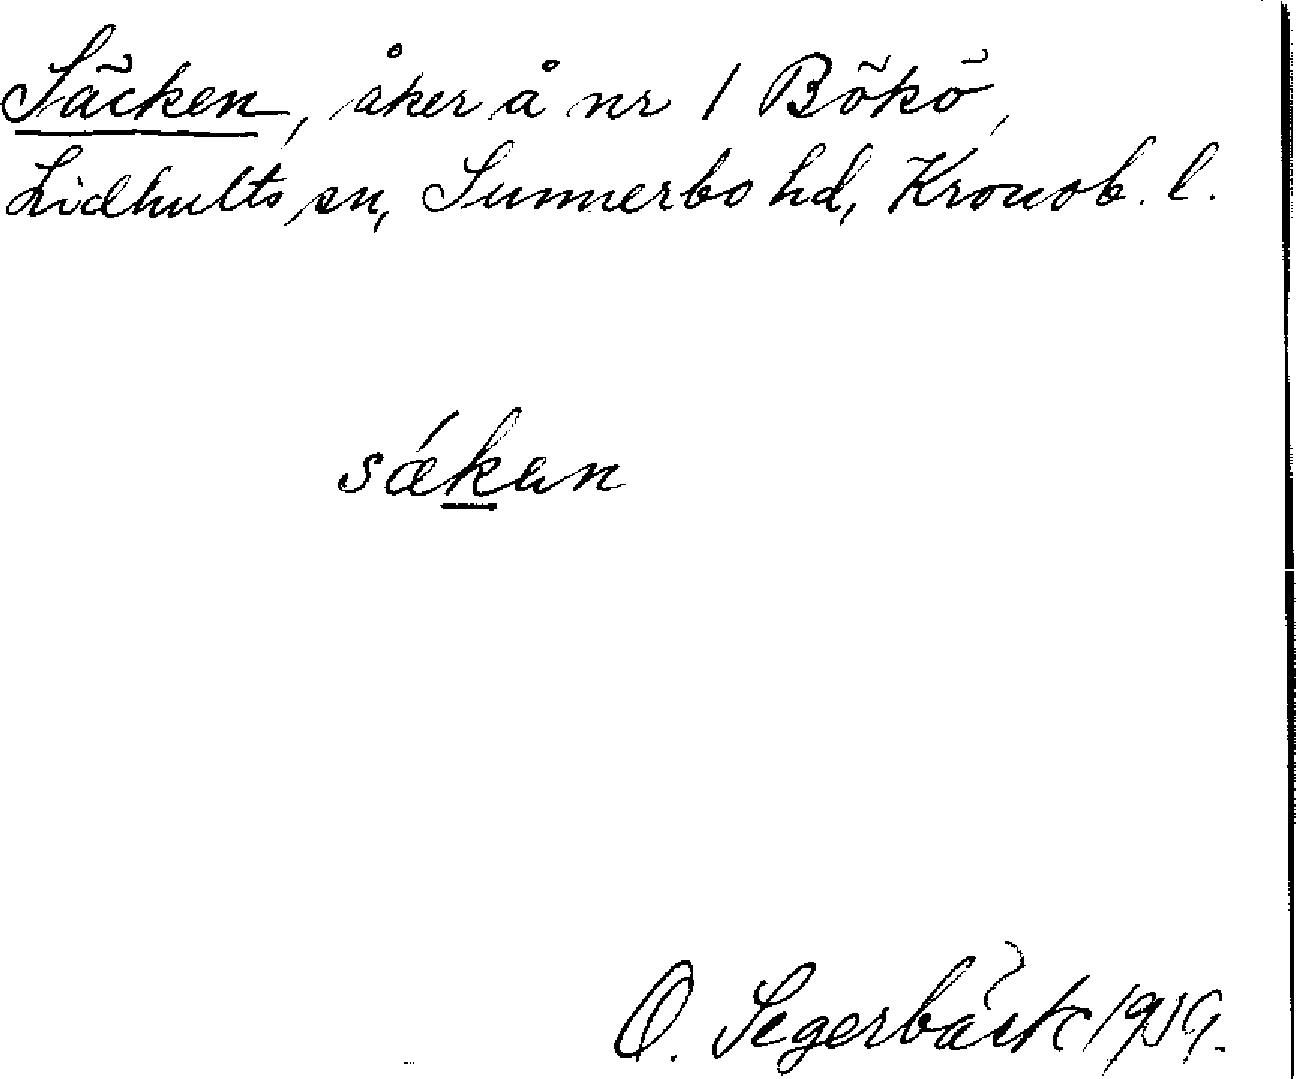 Säcken, åker å nr 1 Bökö,
Lidhults sn, Sunnerbo hd, Kronob. l.
sǽkan
O. Segerbäck 1919.